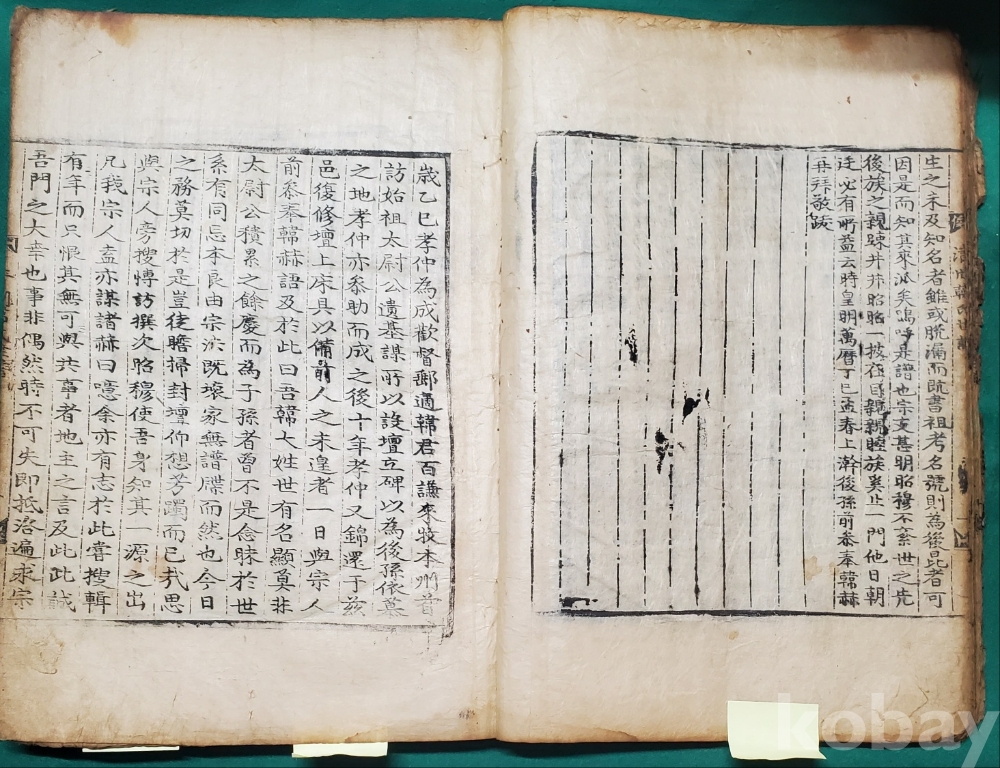 生之未及知名者雖或脫漏而旣書祖考名號則為後昆者可
因是而知其來派矣嗚呼是譜也宗支甚明昭穆不紊世之先
後族之親踈井井昭昭一披在目親親睦族奚止一門他日朝
廷必有所益云時皇明萬曆丁巳孟春上澣後孫前叅奉韓赫
再拜敬跋
歲乙巳孝仲為成歡督郵適韓君百謙來牧本州首
訪始祖太尉公遺基謀所以設壇立碑以為後孫依慕
之地孝仲亦叅助而成之後十年孝仲又錦還于玆
邑復修壇上床具以備前人之未遑者一日與宗人
前叅奉韓赫語及於此曰吾韓大姓世有名顯莫非
太尉公積累之餘慶而為子孫者曾不是念昧於世
系有同忘本良由宗法既壞家無譜牒而然也今日
之務莫切於是豈徒瞻掃封壇仰想芳躅而已哉思
與宗人旁搜博訪撰次昭穆使吾身知其一源之出
凡我宗人盍亦謀諸赫曰噫余亦有志於此嘗搜輯
有年而只恨其無可與共事者地主之言及此此誠
吾門之大幸也事非偶然時不可失即抵洛遍求宗
kobay